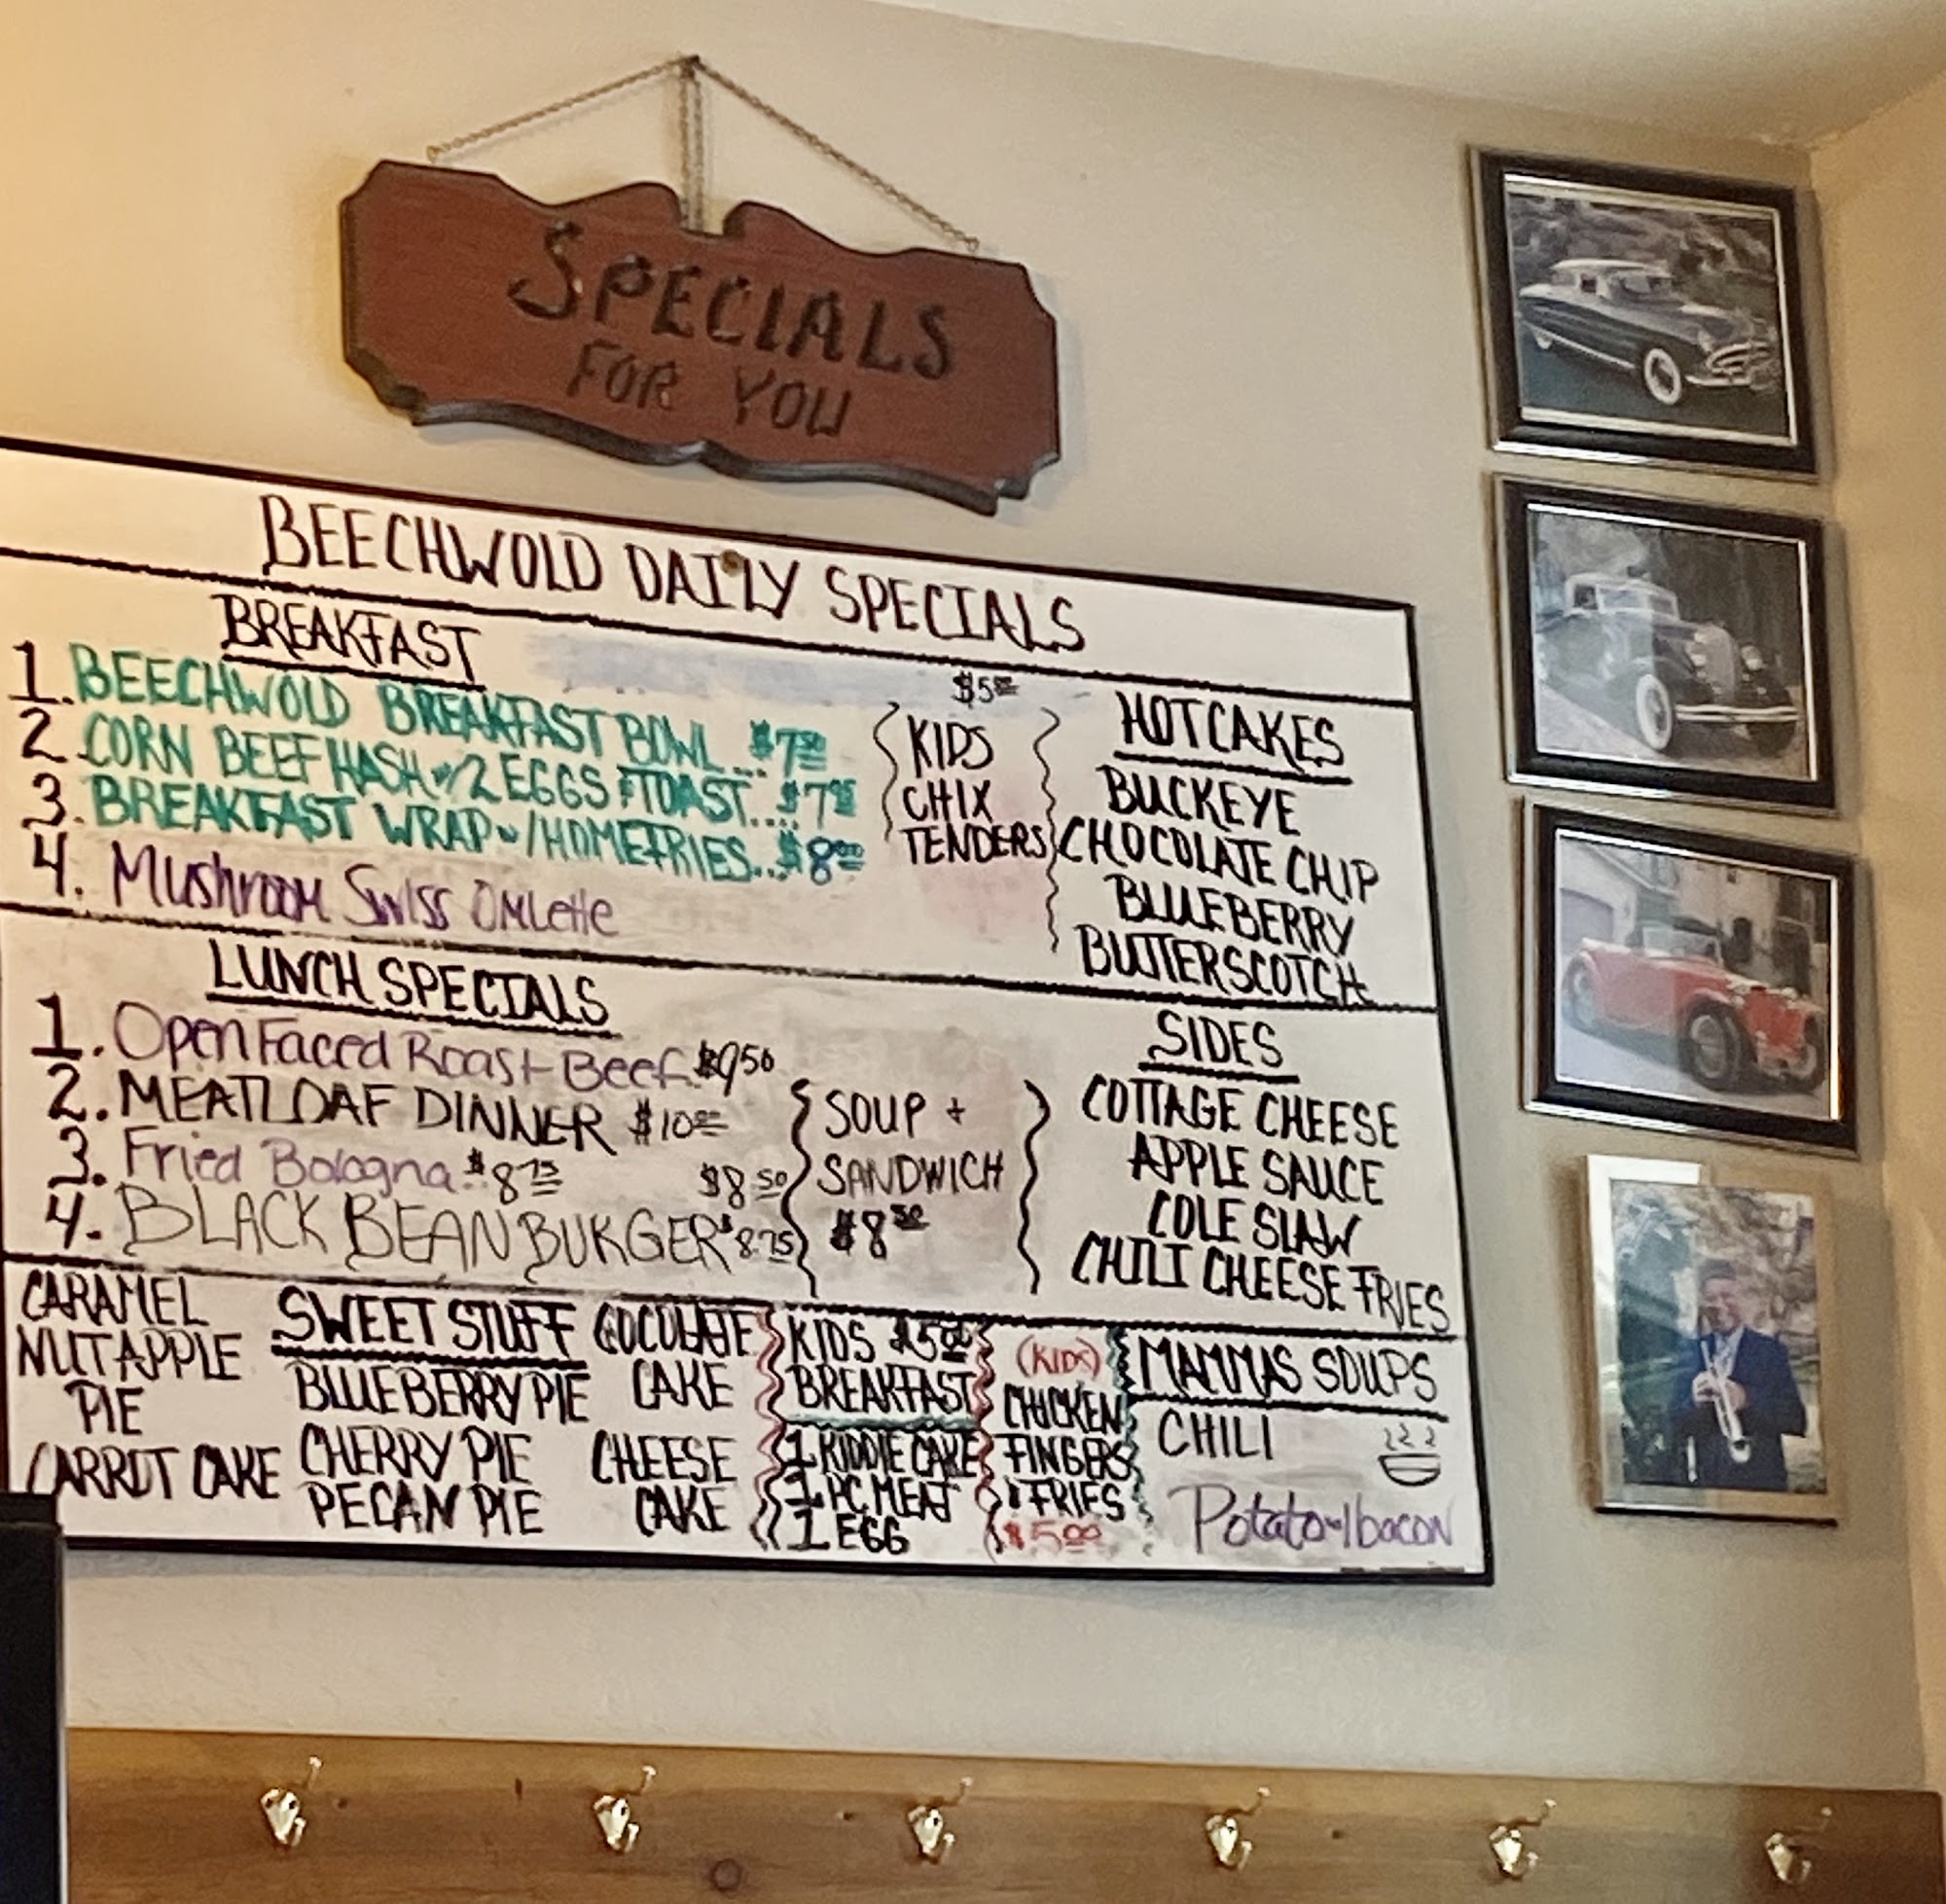 SPECIALS
FOR YOU
BEECHWOLD DAILY SPECIALS
BREAKFAST
1. BEECHWOLD BREAKFAST BOWL...$7.50
2. CORN BEEF HASH w/2 EGGS & TOAST....$7.95
3. BREAKFAST WRAP w/HOMEFRIES...$8.00
4. Mushroom Swiss Omlette
$5.00
KIDS
CHIX
TENDERS
HOTCAKES
BUCKEYE
CHOCOLATE CHIP
BLUEBERRY
BUTTERSCOTCH
LUNCH SPECIALS
1. Open Faced Roast Beef $9.50
2. MEATLOAF DINNER $10
3. Fried Bologna $8.75 $8.50
4. BLACK BEAN BURGER $8.75
SOUP +
SANDWICH
$8.50
SIDES
COTTAGE CHEESE
APPLE SAUCE
COLE SLAW
CHILI CHEESE FRIES
CARAMEL
NUT APPLE
PIE
CARROT CAKE
SWEET STUFF
BLUEBERRY PIE
CHERRY PIE
PECAN PIE
COCOLATE
CAKE
CHEESE
CAKE
KIDS $5.00
BREAKFAST
1 KIDDIE CAKE
1 PC MEAT
1 EGG
(KIDS)
CHICKEN
FINGERS
& FRIES
$5.00
MAMMAS SOUPS
CHILI
Potato w/bacon